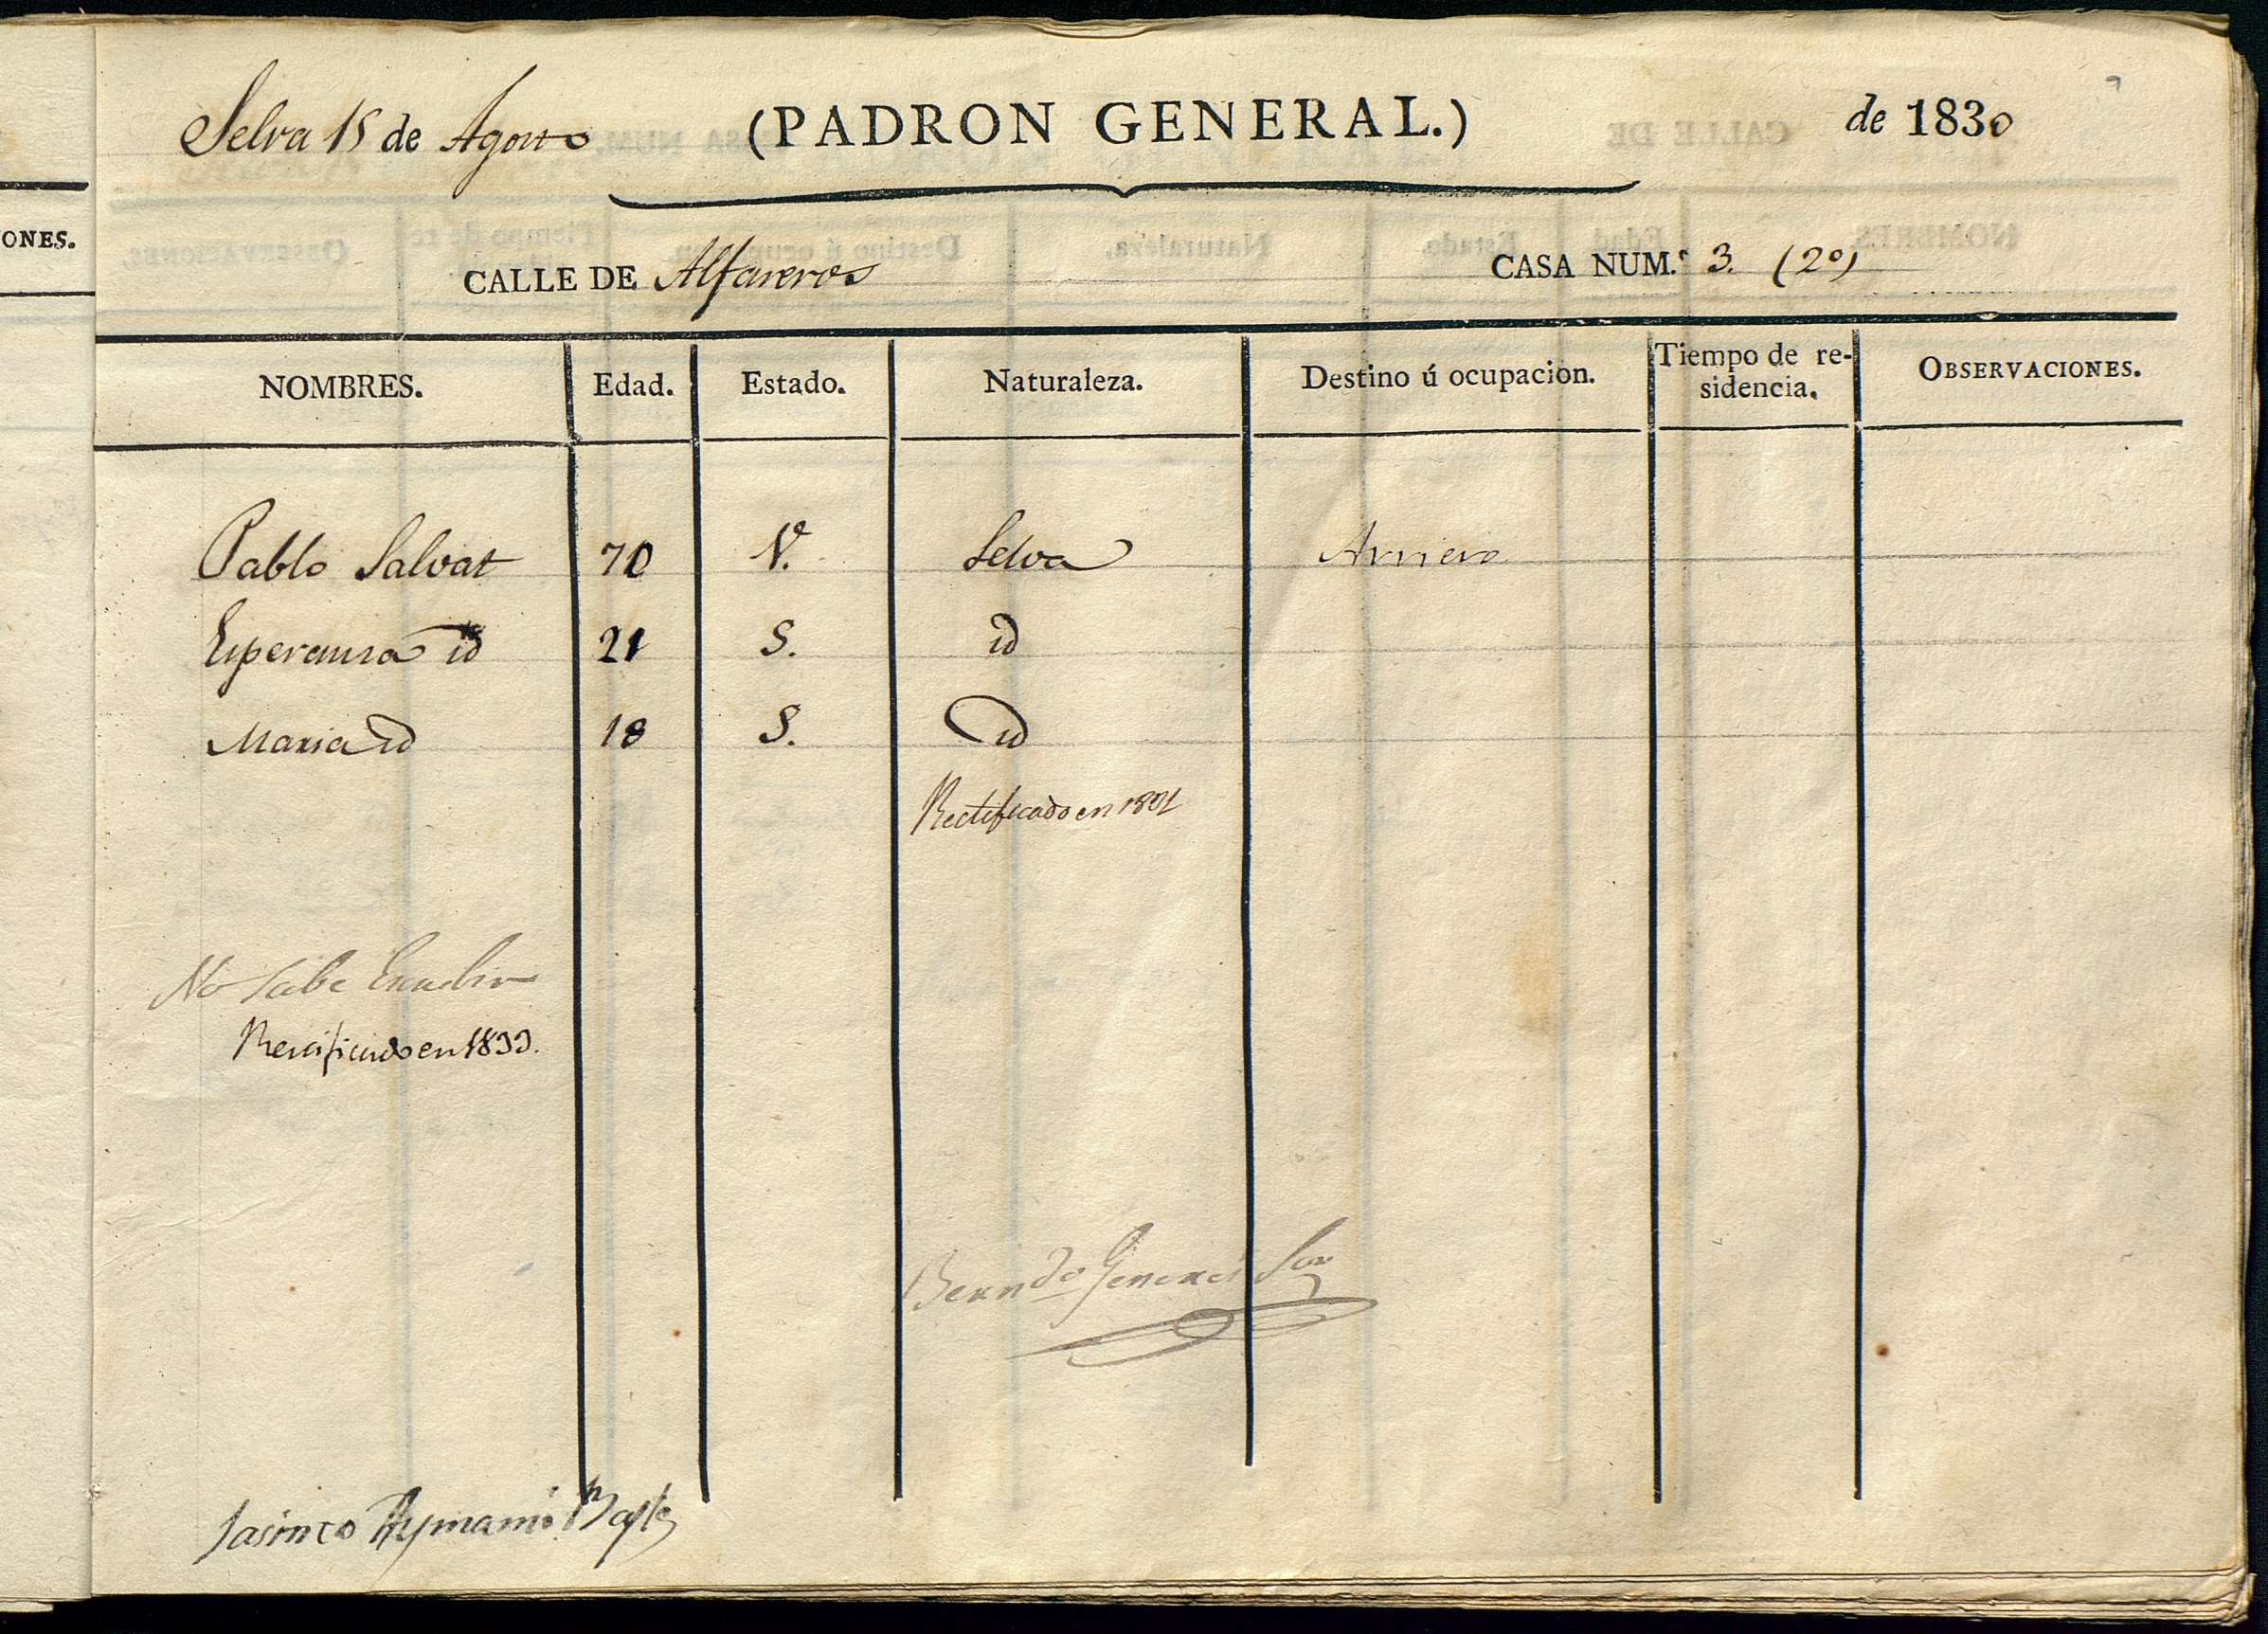 ONES.
Selva 15 de Agosto (PADRON GENERAL.) de 1830
CALLE DE Alfareros CASA NUM.º 3. (2º)
NOMBRES. Edad. Estado. Naturaleza. Destino ú ocupacion. Tiempo de re-sidencia. OBSERVACIONES.
Pablo Salvat 70 V.º Selva Arriero
Esperansa id 21 S. id
Maria id 18 S. id
Rectificado en 1831
No sabe Escribir
Rectificado en 1833.
Berndo
Jasinto Aymamí Bayle